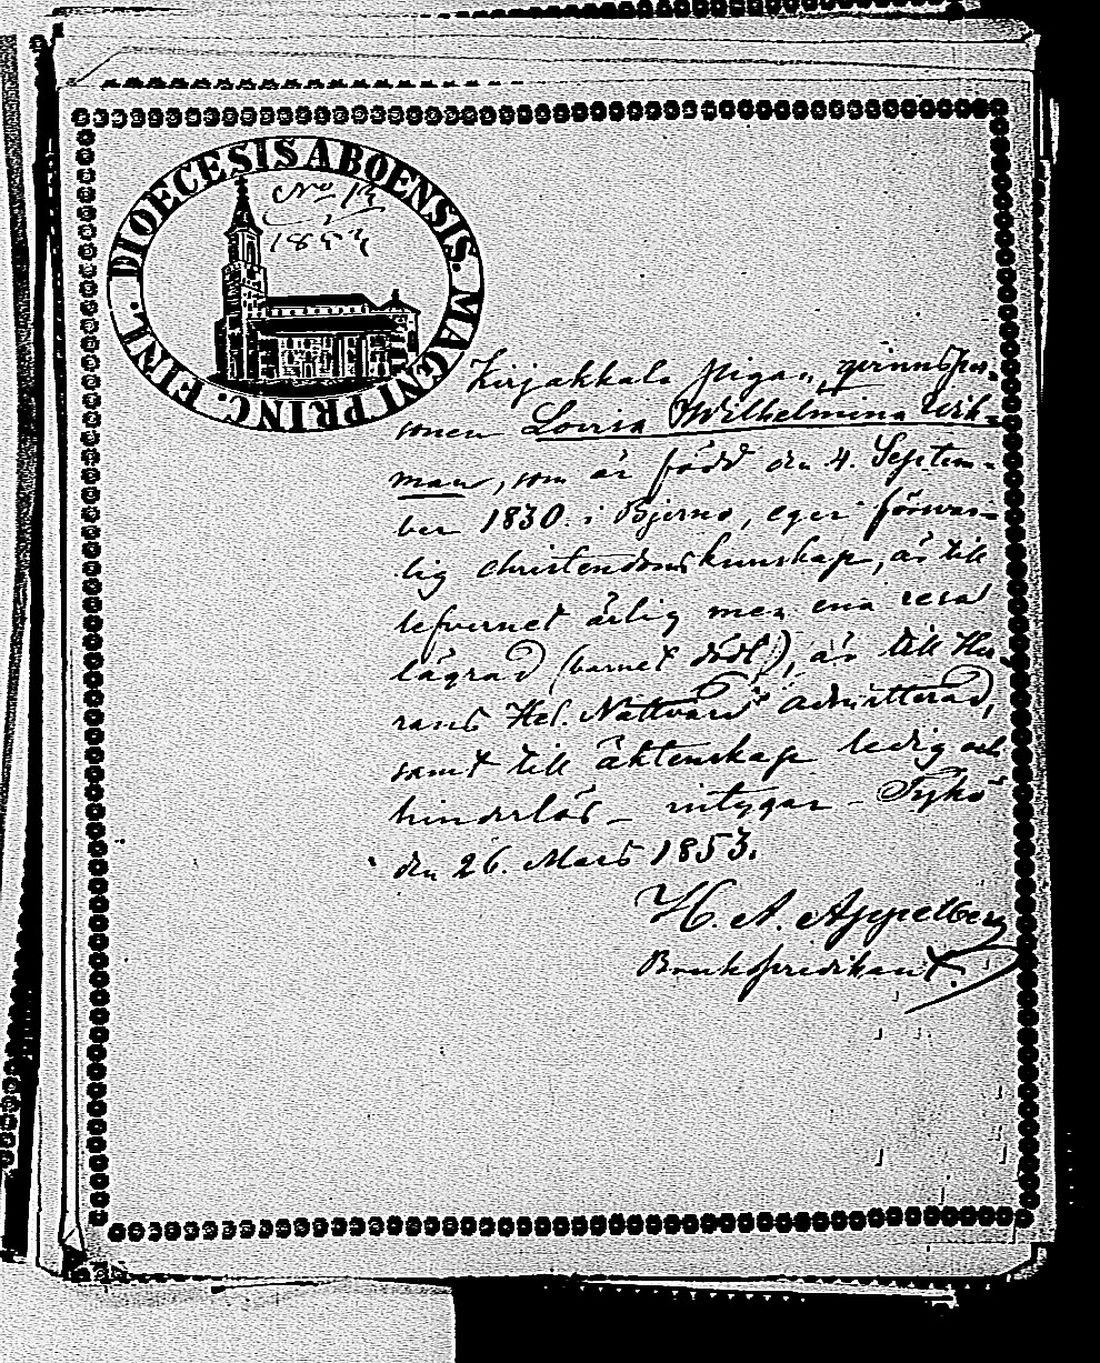 DIOECESIS ABOENSIS. MAGNI PRINC. FINL.
No 13
1853
Kirjakkala Pigan, qvinnsper-
sonen Lovisa Wilhelmina Wik-
man, som är född den 4. Septem-
ber 1830. i Bjerno, eger försvar-
lig christendomskunskap, är till
lefvernet ärlig men ena resa
lägrad (barnet dödt), är till Her-
rans Hel. Nattvard admitterad,
samt till äktenskap ledig och
hinderlös – intygar – Tykö
den 26. Mars 1853.
H. A. Appelberg
Brukspredikant.